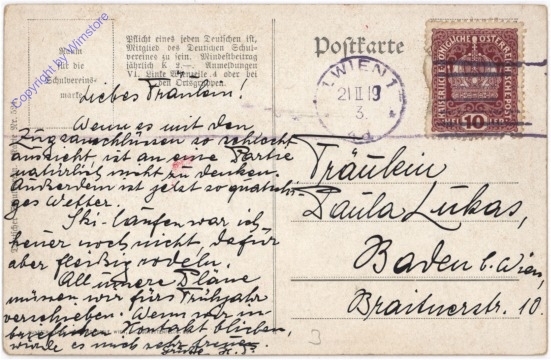 Pflicht eines jeden Deutschen ist,
Mitglied des Deutschen Schul-
vereines zu sein. Mindestbeitrag
jährlich K 2.—. Anmeldungen
VI. Linke Wienzeile 4 oder bei
den Ortsgruppen.
Raum
für die
Schulvereins-
marke
Copyright by Wimstore
Postkarte
1 WIEN 1
21 II 19
3
KAISERLICHE KÖNIGLICHE ÖSTERREICHISCHE POST
10
Liebes Fräulein!
Wenn es mit den
Zugsanschlüssen so schlecht
aussieht, ist an eine Partie
natürlich nicht zu denken.
Außerdem ist jetzt so quatschi-
ges Wetter.
Ski-laufen war ich
heuer noch nicht, dafür
aber fleißig rodeln.
All unsere Pläne
müssen wir fürs Frühjahr
verschieben. Wenn wir in
brieflichem Kontakt blieben,
würde es mich sehr freuen.
Fräulein
Paula Lukas,
Baden b. Wien,
Braitnerstr. 10.